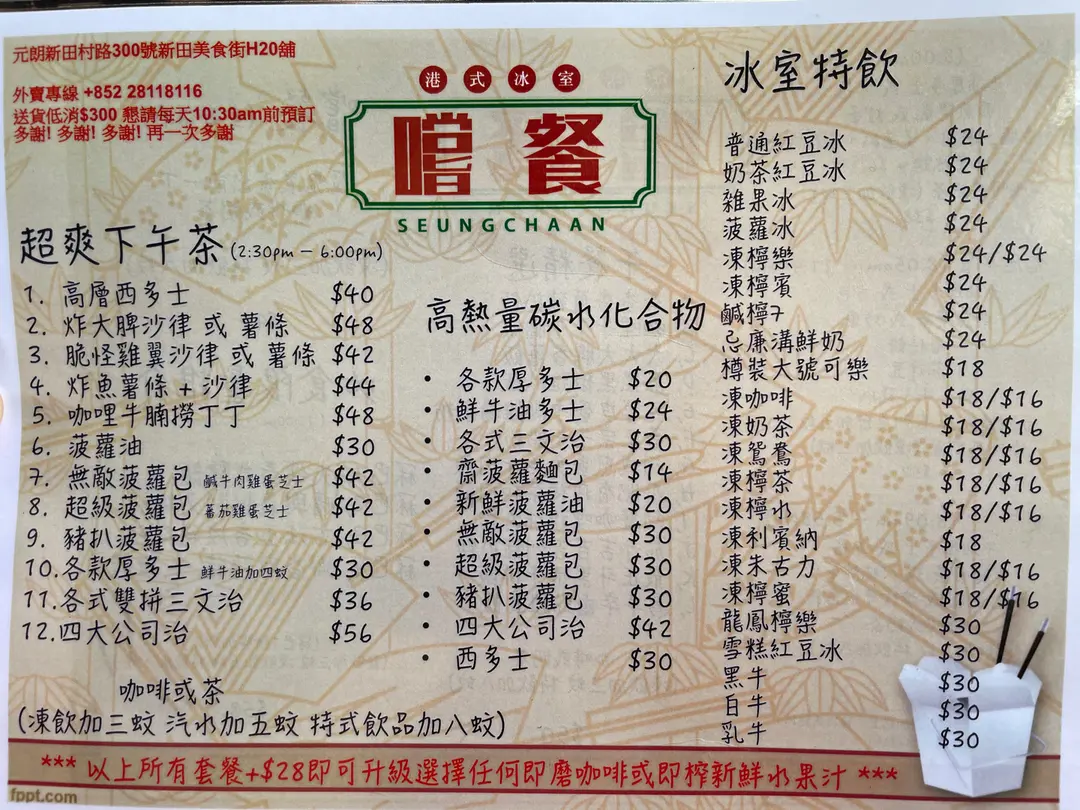 元朗新田村路300號新田美食街H20舖
外賣專線 +852 28118116
送貨低消$300 懇請每天10:30am前預訂
多謝! 多謝! 多謝! 再一次多謝
港式冰室
嚐餐
SEUNGCHAAN
超爽下午茶 (2:30pm – 6:00pm)
1. 高層西多士 $40
2. 炸大脾沙律 或 薯條 $48
3. 脆怪雞翼沙律 或 薯條 $42
4. 炸魚薯條 + 沙律 $44
5. 咖哩牛腩撈丁丁 $48
6. 菠蘿油 $30
7. 無敵菠蘿包 鹹牛肉雞蛋芝士 $42
8. 超級菠蘿包 蕃茄雞蛋芝士 $42
9. 豬扒菠蘿包 $42
10.各款厚多士 鮮牛油加四蚊 $30
11.各式雙拼三文治 $36
12.四大公司治 $56
咖啡或茶
(凍飲加三蚊 汽水加五蚊 特式飲品加八蚊)
高熱量碳水化合物
• 各款厚多士 $20
• 鮮牛油多士 $24
• 各式三文治 $30
• 齋菠蘿麵包 $14
• 新鮮菠蘿油 $20
• 無敵菠蘿包 $30
• 超級菠蘿包 $30
• 豬扒菠蘿包 $30
• 四大公司治 $42
• 西多士 $30
冰室特飲
普通紅豆冰 $24
奶茶紅豆冰 $24
雜果冰 $24
菠蘿冰 $24
凍檸樂 $24/$24
凍檸賓 $24
鹹檸7 $24
忌廉溝鮮奶 $24
樽裝大號可樂 $18
凍咖啡 $18/$16
凍奶茶 $18/$16
凍鴛鴦 $18/$16
凍檸茶 $18/$16
凍檸水 $18/$16
凍利賓納 $18
凍朱古力 $18/$16
凍檸蜜 $18/$16
龍鳳檸樂 $30
雪糕紅豆冰 $30
黑牛 $30
白牛 $30
乳牛 $30
*** 以上所有套餐+$28即可升級選擇任何即磨咖啡或即榨新鮮水果汁 ***
fppt.com